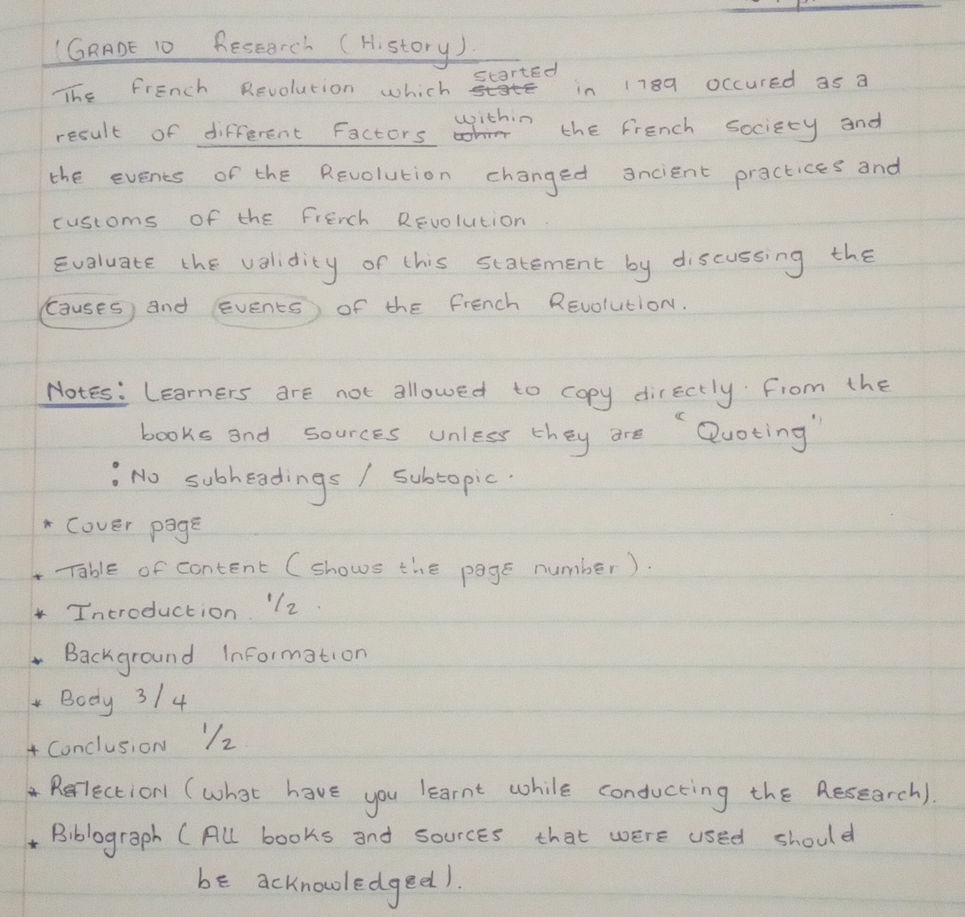 GRADE 10 Research (History).
The French Revolution which started in 1789 occured as a
result of different Factors within the French Society and
the events of the Revolution changed ancient practices and
customs of the French Revolution.
Evaluate the validity of this statement by discussing the
causes and events of the French Revolution.
Notes: Learners are not allowed to copy directly from the
books and sources unless they are "Quoting"
: No subheadings / Subtopic.
* Cover page
* Table of content (shows the page number).
* Introduction 1/2.
* Background Information
* Body 3/4
* Conclusion 1/2
* Reflection (what have you learnt while conducting the Research).
* Biblograph (All books and sources that were used should
be acknowledged).